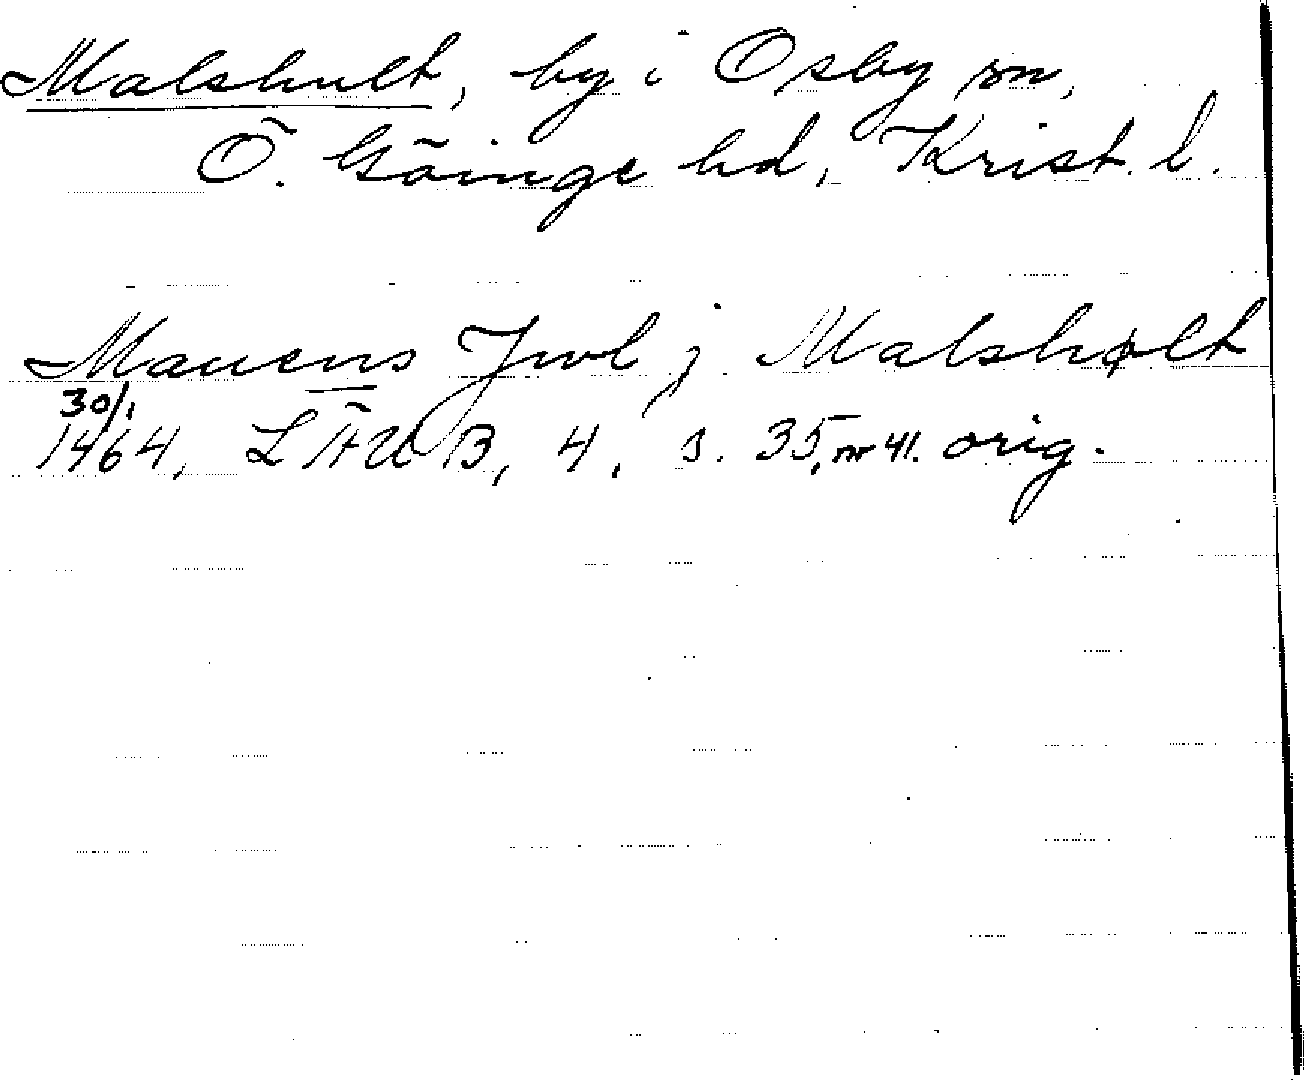 Malshult, by i Osby sn,
Ö. Göinge hd, Krist. l.
Mauens Jwl j Malshølt
30/1
1464, LÄUB, 4, s. 35, nr 41. orig.